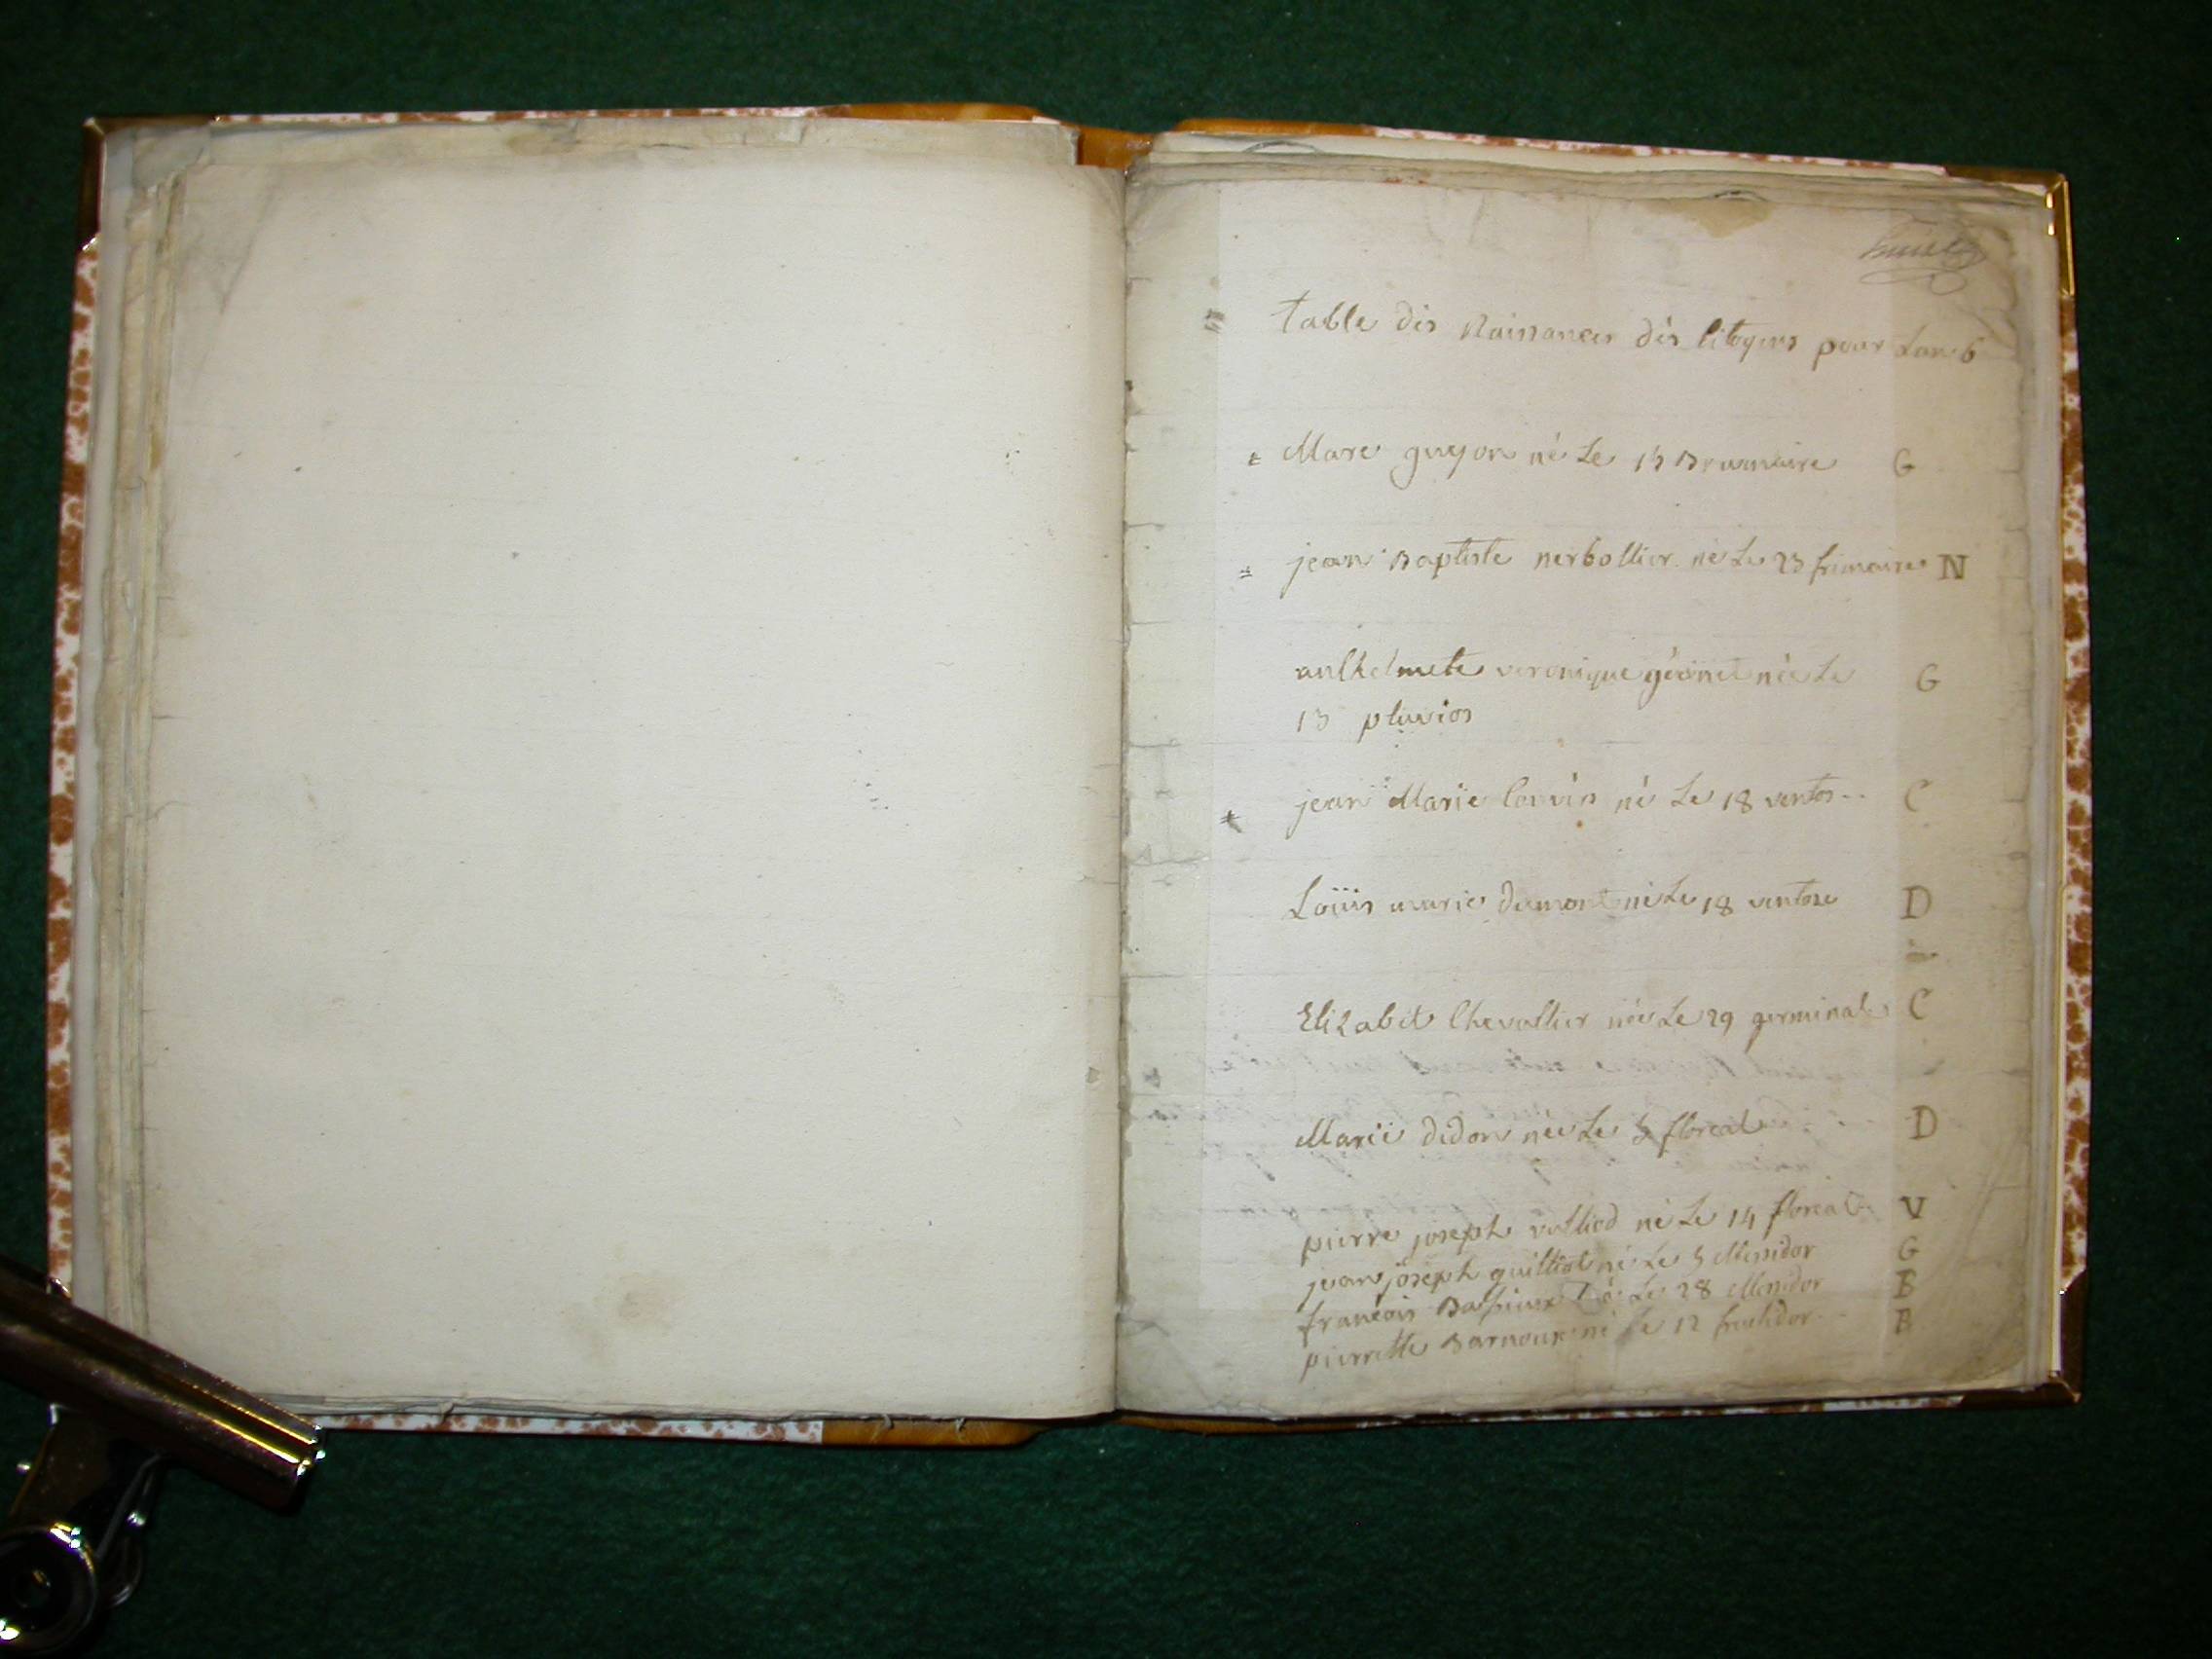 table des Naissances dès Citoyens pour Lan 6
Marc guyon né Le 13 Brumaire G
jean Baptiste nerbollier né Le 23 frimaire N
anthelmete veronique géonet née Le G
13 pluvios
jean Marie né Le 18 ventos.. C
Loüis marie dumont né Le 18 ventose D
Elizabet Chevallier née Le 29 germinal C
Marie didon née Le 5 floreal D
pierre joseph vullied né Le 14 floreal V
jean joseph guilliot né Le 5 Messidor G
francois né Le 28 Messidor B
pierrette Barnoux né Le 12 fructidor B